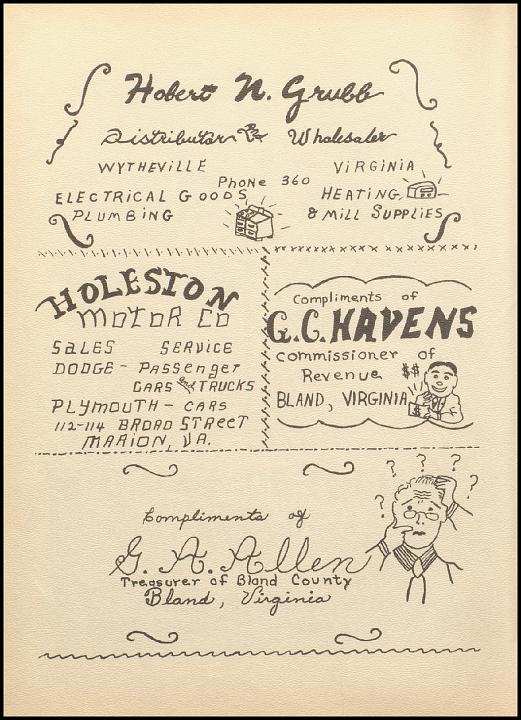 Hobert N. Grubb
Distributor & Wholesaler
WYTHEVILLE VIRGINIA
Phone 360
ELECTRICAL GOODS HEATING
PLUMBING & MILL SUPPLIES
HOLESTON
MOTOR CO
SALES SERVICE
DODGE - Passenger
CARS and TRUCKS
PLYMOUTH - CARS
112-114 BROAD STREET
MARION, VA.
Compliments of
G.C. HAVENS
Commissioner of
Revenue
BLAND, VIRGINIA
$$
$
? ? ? ? ?
Compliments of
G. A. Allen
Treasurer of Bland County
Bland, Virginia